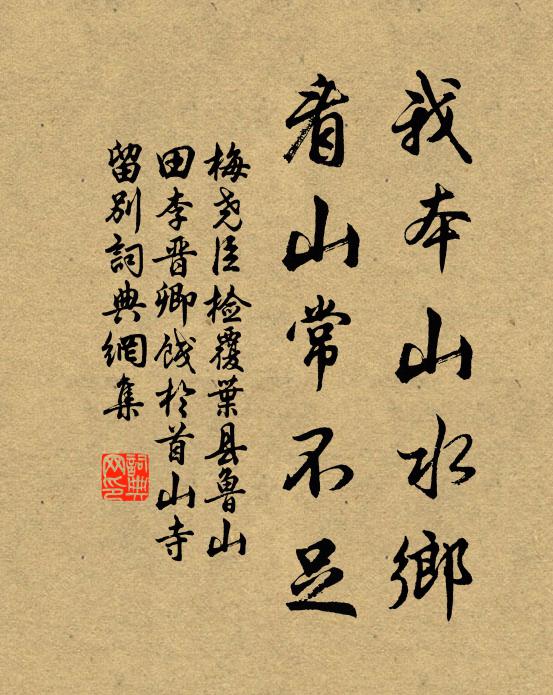 我本山水鄉
看山常不足
梅尧臣检覆葉县鲁山
田李晋卿饯於首山寺
留别詞典網集
詞典网印